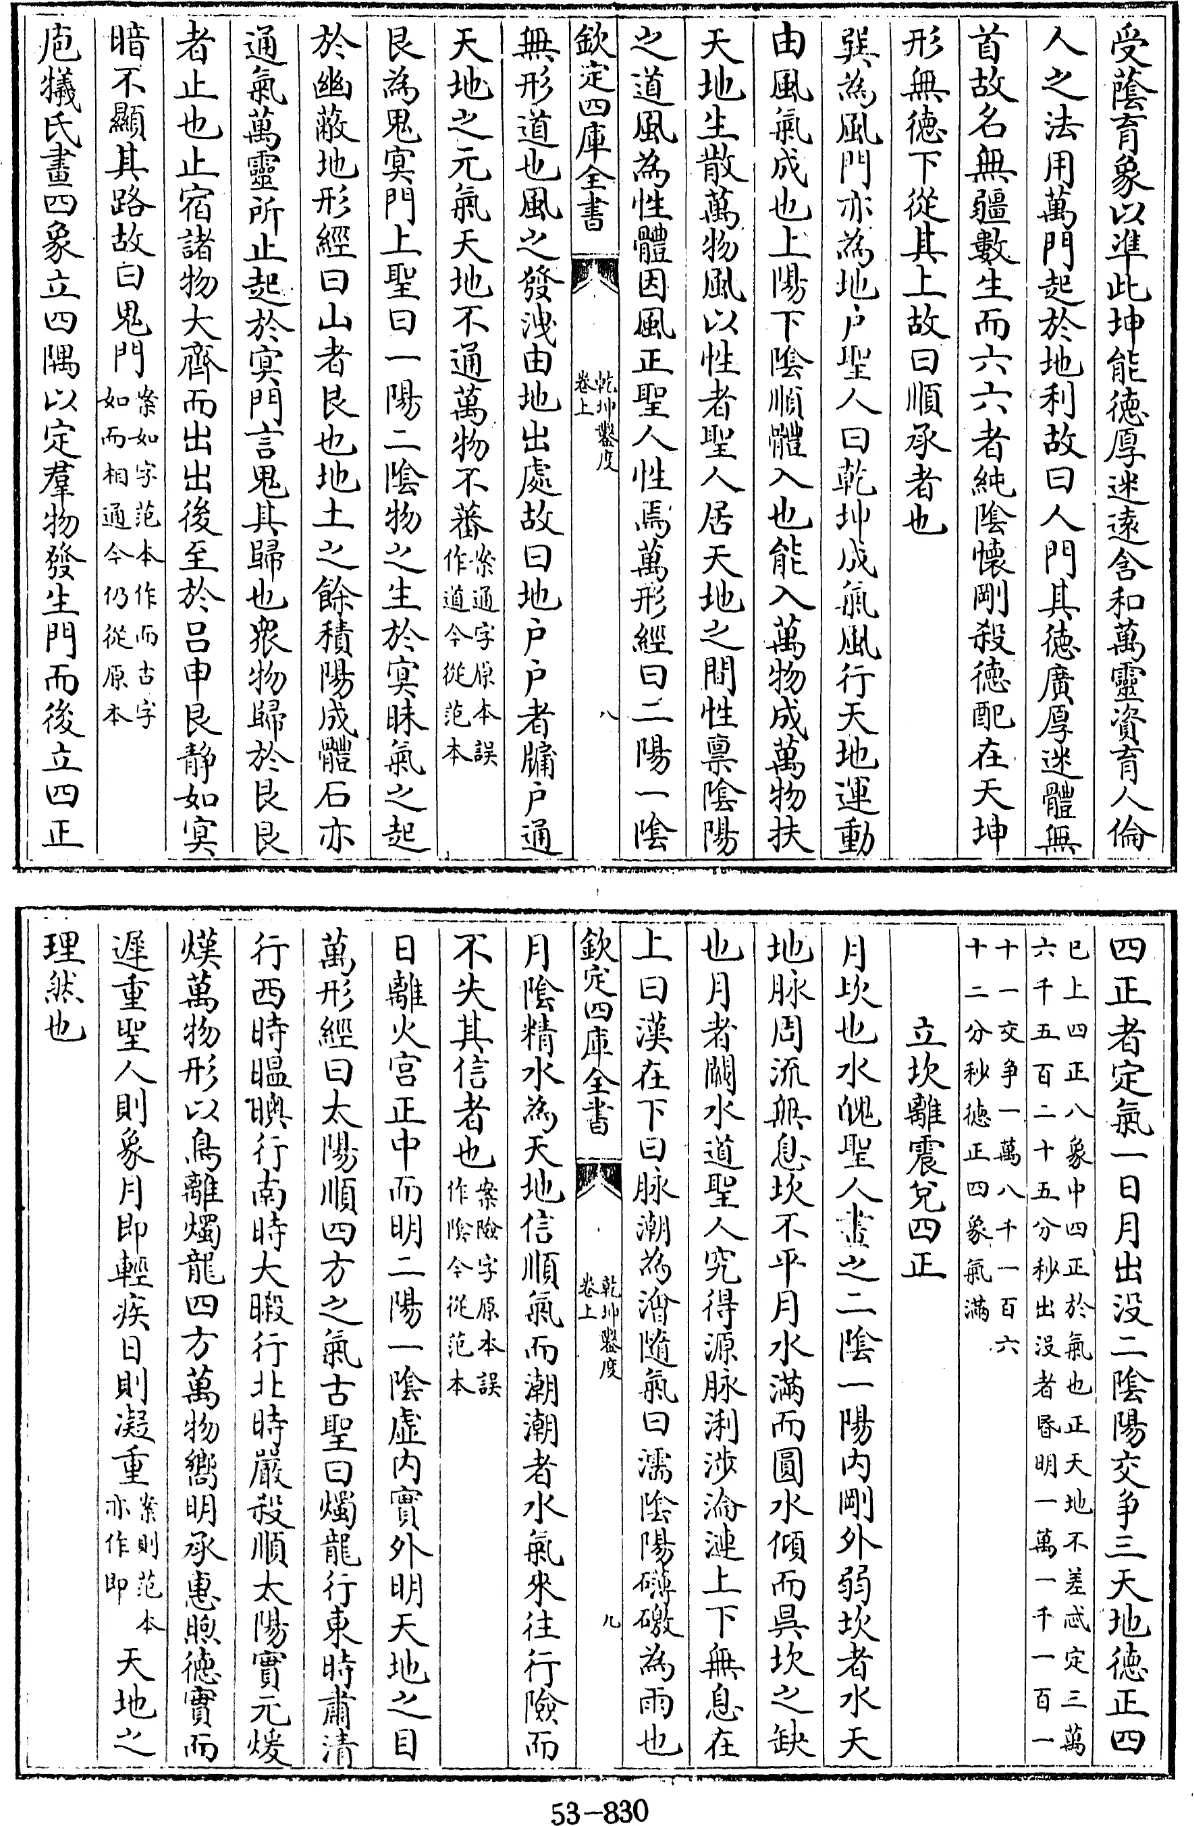 受蔭育象以準此坤能德厚迷遠含和萬靈資育人倫
人之法用萬門起於地利故曰人門其德廣厚迷體無
首故名無疆數生而六六者純陰懷剛殺德配在天坤
形無德下從其上故曰順承者也
巽為風門亦為地户聖人曰乾坤成氣風行天地運動
由風氣成也上陽下陰順體入也能入萬物成萬物扶
天地生散萬物風以性者聖人居天地之間性禀陰陽
之道風為性體因風正聖人性焉萬形經曰二陽一陰
欽定四庫全書
乾坤鑿度
卷上
八
無形道也風之發洩由地出處故曰地户户者牖户通
天地之元氣天地不通萬物不蕃案通字原本誤
作道今從范本
艮為鬼冥門上聖曰一陽二陰物之生於冥昧氣之起
於幽蔽地形經曰山者艮也地土之餘積陽成體石亦
通氣萬靈所止起於冥門言鬼其歸也衆物歸於艮艮
者止也止宿諸物大齊而出出後至於呂申艮静如冥
暗不顯其路故曰鬼門案如字范本作而古字
如而相通今仍從原本
庖犧氏畫四象立四隅以定羣物發生門而後立四正
四正者定氣一日月出沒二陰陽交爭三天地德正四
已上四正八象中四正於氣也正天地不差忒定三萬
六千五百二十五分秒出沒者昬明一萬一千一百一
十一交爭一萬八千一百六
十二分秒德正四象氣滿
立坎離震兌四正
月坎也水魄聖人畫之二陰一陽内剛外弱坎者水天
地脉周流無息坎不平月水滿而圓水傾而昃坎之缺
也月者闕水道聖人究得源脉浰涉淪漣上下無息在
上曰漢在下曰脉潮為澮隨氣曰濡陰陽礴礉為雨也
欽定四庫全書
乾坤鑿度
卷上
九
月陰精水為天地信順氣而潮潮者水氣來往行險而
不失其信者也案險字原本誤
作陰今從范本
日離火宫正中而明二陽一陰虚内實外明天地之目
萬形經曰太陽順四方之氣古聖曰燭龍行東時肅清
行西時㬈㬉行南時大暇行北時嚴殺順太陽實元煖
熯萬物形以鳥離燭龍四方萬物嚮明承惠煦德實而
遲重聖人則象月即輕疾日則凝重案則范本
亦作即天地之
理然也
53-830